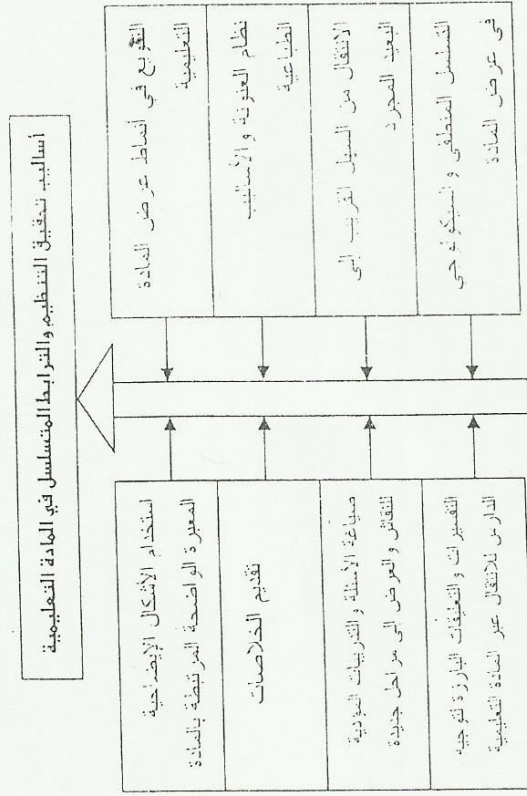 أساليب تحقيق التنظيم والترابط المتسلسل في المادة التعليمية
التنويع في أنماط عرض المادة
التعليمية
نظام العنونة والأساليب
الطباعية
الانتقال من السهل القريب إلى
البعيد المجرد
التسلسل المنطقي والسيكولوجي
في عرض المادة
استخدام الأشكال الإيضاحية
المعبرة الواضحة المرتبطة بالمادة
تقديم الخلاصات
صياغة الأسئلة والتدريبات المؤدية
للنقاش والعرض إلى مراحل جديدة
التفسيرات والتعليقات البارزة لتوجيه
الدارس للانتقال عبر المادة التعليمية